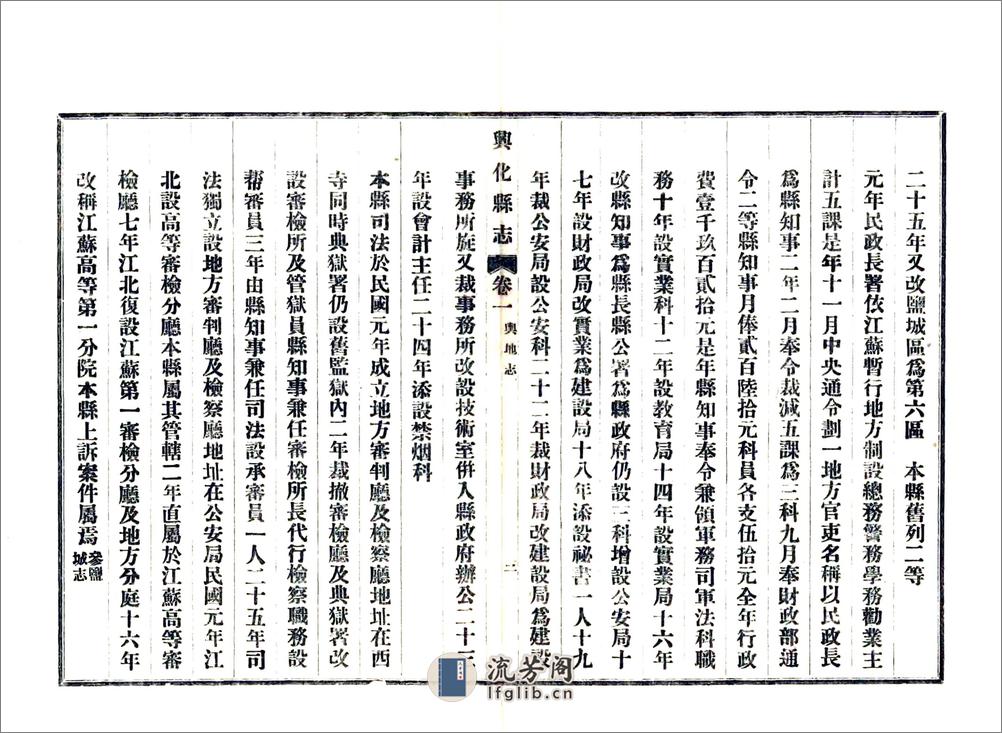 二十五年又改鹽城區爲第六區　本縣舊列二等
元年民政長署依江蘇暫行地方制設總務警務學務勸業主
計五課是年十一月中央通令劃一地方官吏名稱以民政長
爲縣知事二年二月奉令裁減五課爲三科九月奉財政部通
令二等縣知事月俸貳百陸拾元科員各支伍拾元全年行政
費壹千玖百貳拾元是年縣知事奉令兼領軍務司軍法科職
務十年設實業科十二年設教育局十四年設實業局十六年
改縣知事爲縣長縣公署爲縣政府仍設三科增設公安局十
七年設財政局改實業爲建設局十八年添設祕書一人十九
年裁公安局設公安科二十二年裁財政局改建設局爲建設
興化縣志　卷一　輿地志　三
事務所旋又裁事務所改設技術室併入縣政府辦公二十三
年設會計主任二十四年添設禁烟科
本縣司法於民國元年成立地方審判廳及檢察廳地址在西
寺同時典獄署仍設舊監獄內二年裁撤審檢廳及典獄署改
設審檢所及管獄員縣知事兼任審檢所長代行檢察職務設
帮審員三年由縣知事兼任司法設承審員一人二十五年司
法獨立設地方審判廳及檢察廳地址在公安局民國元年江
北設高等審檢分廳本縣屬其管轄二年直屬於江蘇高等審
檢廳七年江北復設江蘇第一審檢分廳及地方分庭十六年
改稱江蘇高等第一分院本縣上訴案件屬焉 參鹽城志
流芳阁
lfglib.cn